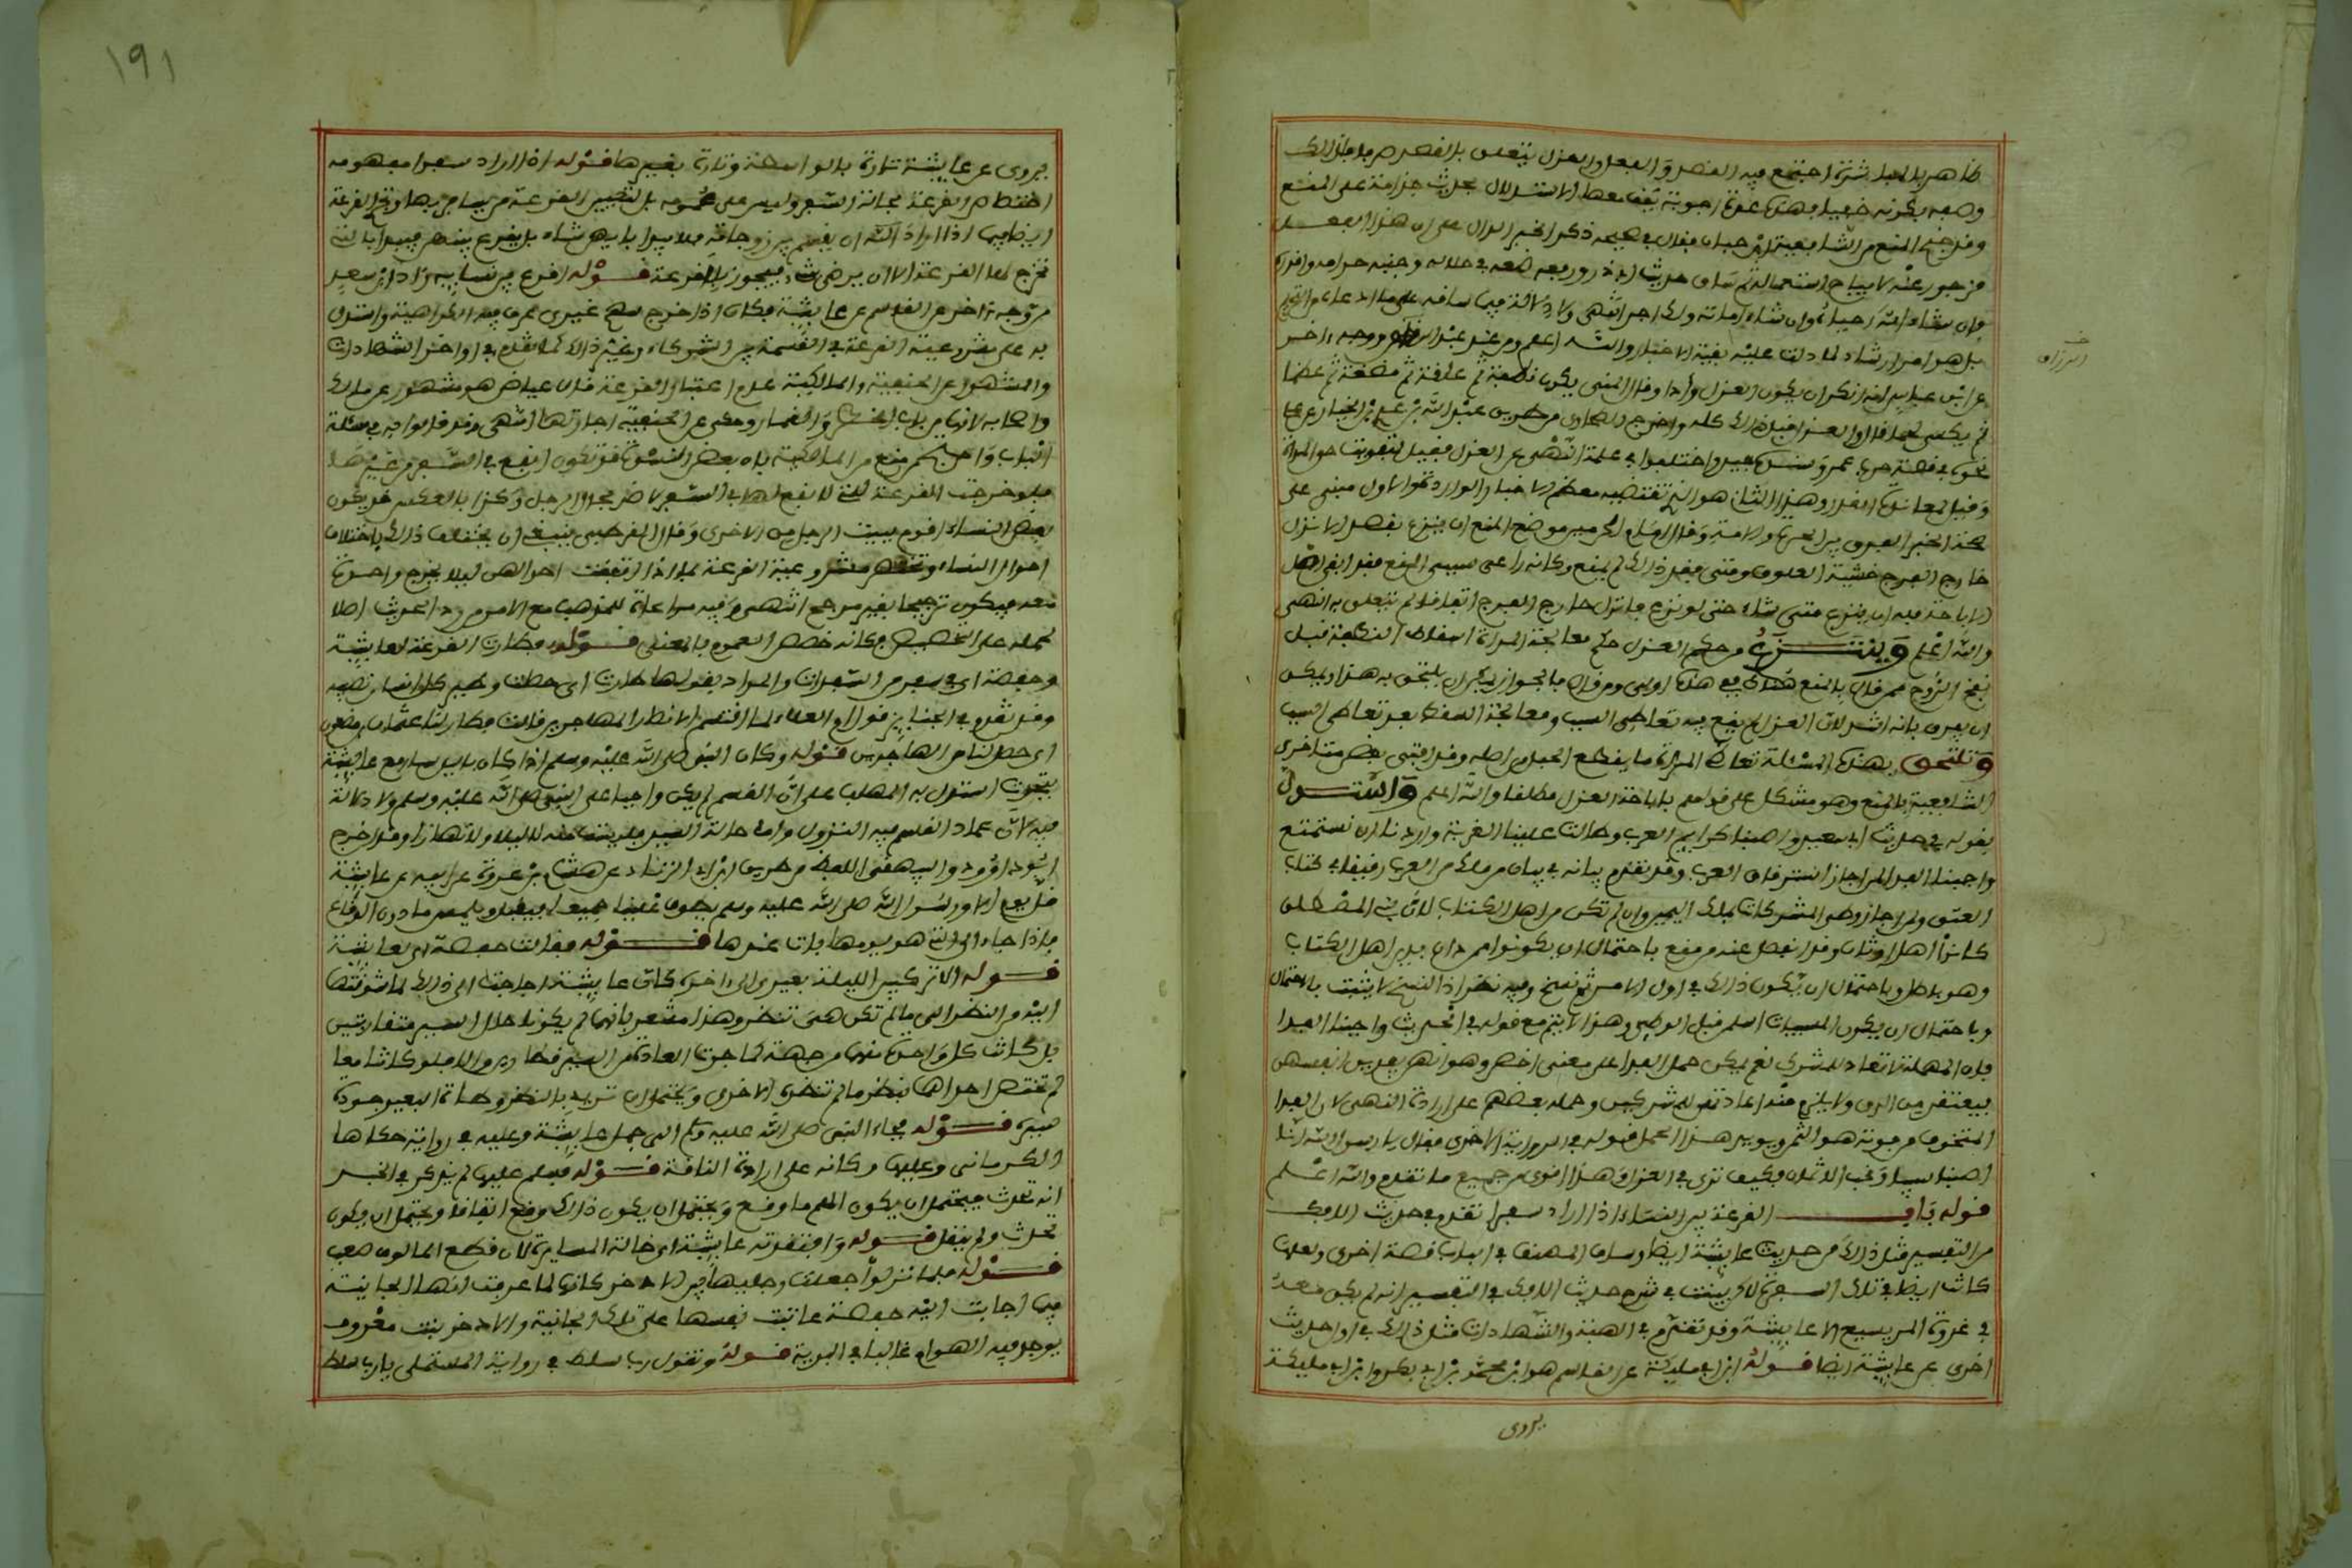 ظاهر بالمباشرة اجتمع فيه القصد والفعل والعزل يتعلق بالقصد صرفا فلذلك
وصفه بكونه خفيا فهذه عدة اجوبة يقف معها الاستدلال بحديث جذامة على المنع
وقد جنح الى المنع من الشافعية ابن حبان فقال في صحيحه ذكر الخبر الدال على ان هذا الفعل
مزجور عنه لا يباح استعماله ثم ساق حديث ابي ذر رفعه ضعه في حلاله وجنبه حرامه واقرره
فان شاء الله احياه وان شاء اماته ولك اجر انتهى ولا دلالة فيما ساقه على ما ادعاه من التحريم
بل هو امر ارشاد لما دلت عليه بقية الاخبار والله اعلم ومن عند عبد الرزاق ووجه اخر
عن ابن عباس انه انكر ان يكون العزل وأدا وقال المني يكون نطفة ثم علقة ثم مضغة ثم عظما
ثم يكسى لحما قال والعزل قبل ذلك كله واخرج الطحاوي من طريق عبد الله بن عدي بن الخيار عن علي
نحوه في قصة جرت عند عمر وسنده جيد واختلفوا في علة النهي عن العزل فقيل لتفويت حق المراة
وقيل لمعاندة القدر وهذا الثاني هو الذي تقتضيه معظم الاخبار الواردة في ذلك والاول مبني على
صحة الخبر المفرق بين الحرة والامة وقال امام الحرمين موضع المنع ان ينزع بقصد الانزال
خارج الفرج خشية العلوق ومتى فقد ذلك لم يمنع وكانه راعى سبب المنع فاذا فقد بقي اصل
الاباحة فله ان ينزع متى شاء حتى لو نزع فانزل خارج الفرج اتفاقا لم يتعلق به النهي
والله اعلم وينتزع من حكم العزل حكم معالجة المراة اسقاط النطفة قبل
نفخ الروح فمن قال بالمنع هناك ففي هذه اولى ومن قال بالجواز يمكن ان يلتحق به هذا ويمكن
ان يفرق بانه اشد لان العزل لم يقع فيه تعاطي السبب ومعالجة السقط بعد تعاطي السبب
وتلتحق بهذه المسئلة تعاطي المراة ما يقطع الحبل من اصله وقد افتى بعض متاخري
الشافعية بالمنع وهو مشكل على قولهم باباحة العزل مطلقا والله اعلم واستدل
بقوله في حديث ابي سعيد واصبنا كرايم العرب وطالت علينا العزبة واردنا ان نستمتع
واحببنا الفدا لمن اجاز استرقاق العرب وقد تقدم بيانه في باب من ملك من العرب رقيقا في كتاب
العتق ولمن اجاز وطء المشركات بملك اليمين وان لم تكن من اهل الكتاب لان بني المصطلق
كانوا اهل اوثان وقد انفصل عنه من منع باحتمال ان يكونوا ممن دان بدين اهل الكتاب
وهو باطل وباحتمال ان يكون ذلك في اول الامر ثم نسخ وفيه نظر اذ النسخ لا يثبت بالاحتمال
وباحتمال ان يكون المسبيات اسلمن قبل الوطي وهذا لا يتم مع قوله في الحديث واحببنا الفدا
فان المسلمة لا تعاد للمشرك نعم يمكن حمل الفدا على معنى اخص وهو انهن يفدين انفسهن
فيعتقن من الرق ولا يلزم منه اعادتهن للمشركين وحمله بعضهم على ارادة الثمن لان الفدا
المتخوف من فوته هو الثمن ويويد هذا الحمل قوله في الرواية الاخرى فقال يا رسول الله انا
اصبنا سبيا ونحب الاثمان فكيف ترى في العزل وهذا اقوى من جميع ما تقدم والله اعلم
قوله باب القرعة بين النساء اذا اراد سفرا تقدم في حديث الافك
من التفسير مثل ذلك من حديث عايشة ايضا وساق المصنف في الباب قصة اخرى ولعلها
كانت ايضا في تلك السفرة لاكن بينت في شرح حديث الافك في التفسير انه لم يكن معه
في غزوة المريسيع الا عايشة وقد تقدم في الهبة والشهادات مثل ذلك في اول حديث
اخرى عن عايشة ايضا قوله ابن ابي مليكة عن القاسم هو ابن محمد بن ابي بكر وابن ابي مليكة
يروى
١٩١
يروى عن عايشة تارة بالواسطة وتارة بغيرها قوله اذا اراد سفرا مفهومه
اختصاص القرعة بحالة السفر وليس على عمومه بل لتعيين القرعة من يسافر بها وتجري القرعة
ايضا فيما اذا اراد الله ان يقسم بين زوجاته فلا يبدا بايهن شاء بل يقرع بينهن فيبدا بالتي
تخرج لها القرعة الا ان يرضين بشيء فيجوز بلا قرعة قوله اقرع بين نسايه زاد ابن سعد
من وجه اخر عن القاسم عن عايشة فكان اذا خرج سهم غيري عرف فيه الكراهية واستدل
به على مشروعية القرعة في القسمة بين الشركاء وغير ذلك كما تقدم في اواخر الشهادات
والمشهور عن الحنفية والمالكية عدم اعتبار القرعة قال عياض هو مشهور عن مالك
واصحابه لانه من باب الخطر والقمار وحكي عن الحنفية اجازتها انتهى وقد قالوا به في مسئلة
الباب واحتج من منع من المالكية بان بعض النسوة قد تكون انفع في السفر من غيرها
فلو خرجت القرعة للتي لا نفع بها في السفر لاضر بحال الرجل وكذا بالعكس قد يكون
بعض النساء اقوم ببيت الرجل من الاخرى وقال القرطبي ينبغي ان يختلف ذلك باختلاف
احوال النساء وتختص مشروعية القرعة بما اذا اتفقت احوالهن ليلا يخرج واحدة
معه فيكون ترجيحا بغير مرجح انتهى وفيه مراعاة للمذهب مع الامن من رد الحديث اصلا
لحمله على التخصيص فكانه خصص العموم بالمعنى قوله فطارت القرعة لعايشة
وحفصة اي في سفرة من السفرات والمراد بقولها طارت اي حصلت وطير كل انسان نصيبه
وقد تقدم في الجنايز قول ام العلاء لما اقتسم الانصار المهاجرين قالت فطار لنا عثمان بن مظعون
اي حصل لنا من المهاجرين قوله وكان النبي صلى الله عليه وسلم اذا كان بالليل سار مع عايشة
يتحدث استدل به المهلب على ان القسم لم يكن واجبا على النبي صلى الله عليه وسلم ولا دلالة
فيه لان عماد القسم فيه النزول واما حالة السير فليست منه لا ليلا ولا نهارا وقد اخرج
ابو داود والبيهقي واللفظ من طريق ابن ابي الزناد عن هشام بن عروة عن ابيه عن عايشة
قل يوم الا ورسول الله صلى الله عليه وسلم يطوف علينا جميعا فيقبل ويلمس ما دون الوقاع
فاذا جاء الى التي هو يومها بات عندها قوله فقالت حفصة اي لعايشة
قوله الا تركبين الليلة بعيري الى اخره كان عايشة اجابت الى ذلك لما شوقتها
اليه من النظر الى ما لم تكن هي تنظر وهذا مشعر بانهما لم يكونا حال السير متقاربتين
بل كانت كل واحدة منهما من جهة كما جرت العادة من السير قطارين والا فلو كانتا معا
لم تختص احداهما بنظر ما لم تنظره الاخرى ويحتمل ان تريد بالنظر وطاة البعير وجودة
سيره قوله فجاء النبي صلى الله عليه وسلم الى جمل عايشة وعليه في رواية حكاها
الكرماني وعليها وكانه على ارادة الناقة قوله فسلم عليها لم يذكر في الخبر
انه تحدث فيحتمل ان يكون الهم ما وقع ويحتمل ان يكون ذلك وقع اتفاقا ويحتمل ان يكون
تحدث ولم ينقل قوله وافتقدته عايشة اي حالة المسايرة لان قطع المالوف صعب
قوله فلما نزلوا جعلت رجليها بين الاذخر كانها لما عرفت انها الجانية
فيما اجابت اليه حفصة عاتبت نفسها على تلك الجانية والاذخر نبت معروف
يوجد فيه الهوام غالبا في البرية قوله وتقول رب سلط في رواية المستملي يا رب سلط